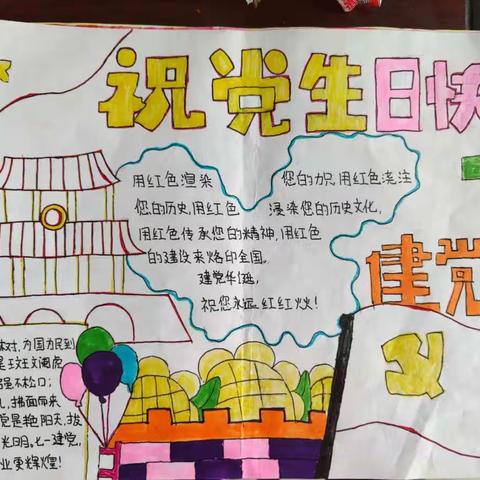 祝党生日快
用红色渲染
您的历史,用红色
用红色传承您的精神,用红色
的建设来烙印全国。
建党华诞,
祝您永远红红火火!
您的力只用红色浇注
浸染您的历史文化,
建党
对,为国为民到
强不松口;
拂面带来
党是艳阳天,拨
光明。七一建党,
业更辉煌!